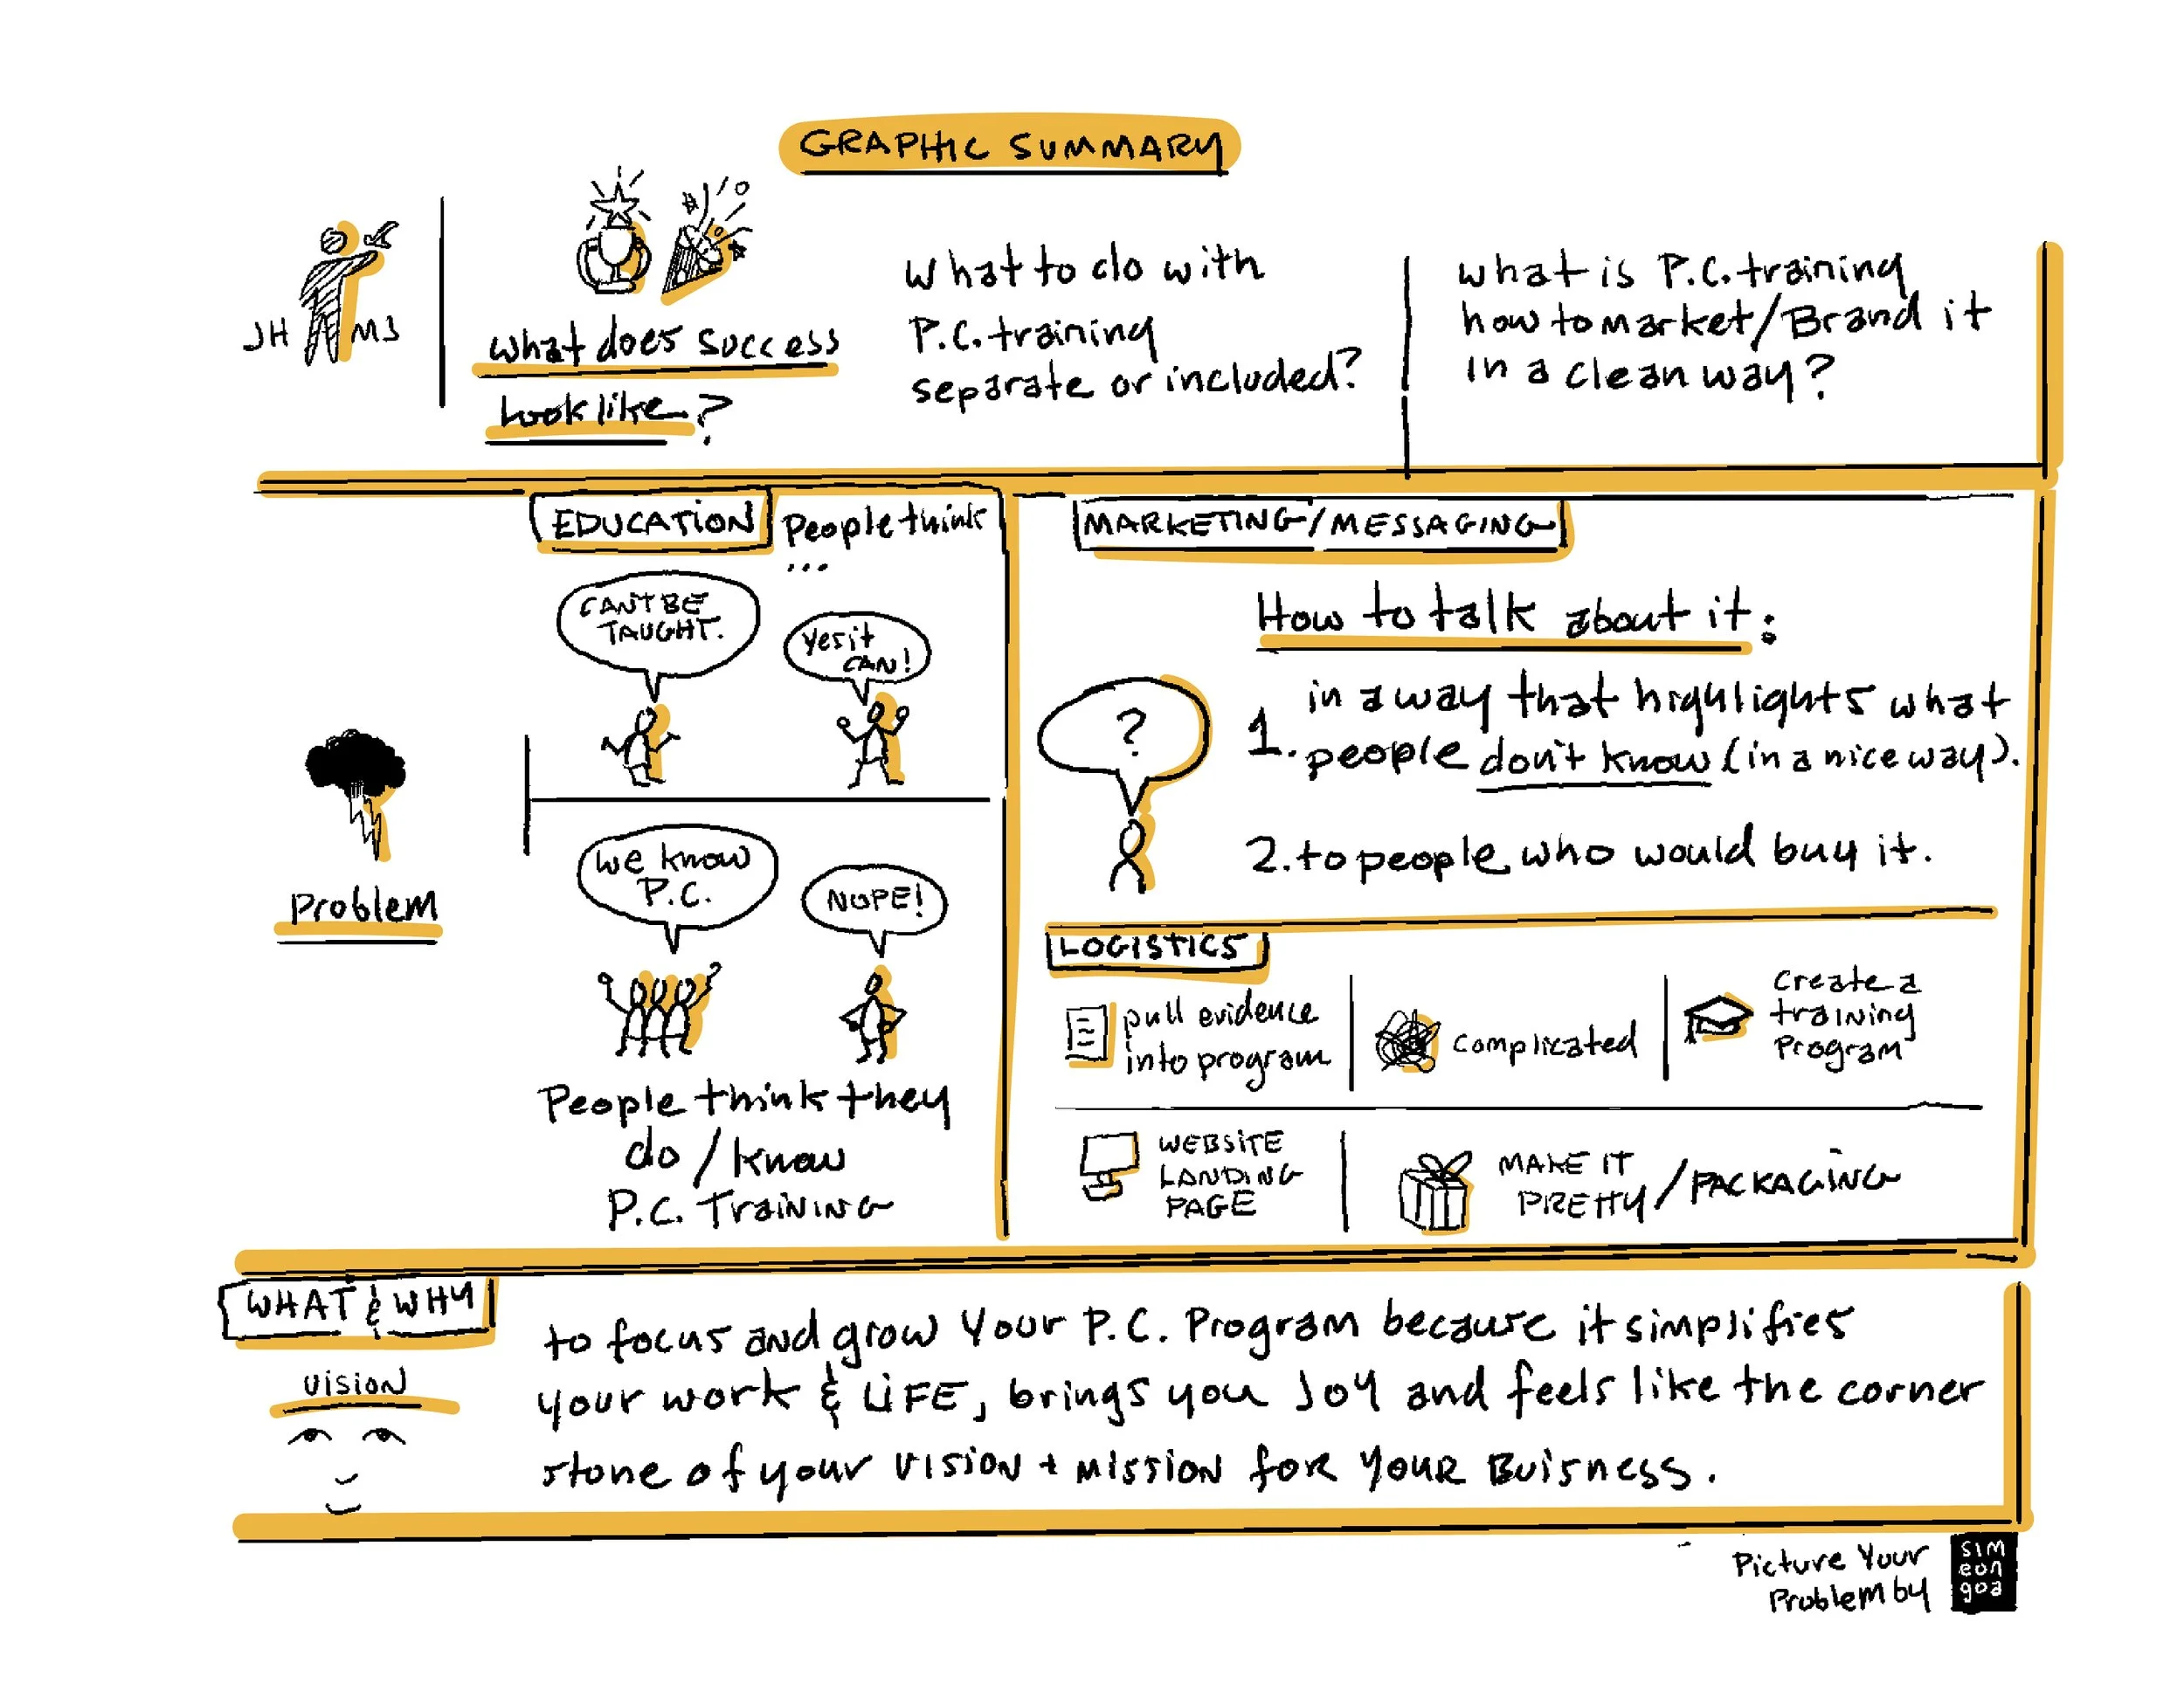 GRAPHIC SUMMARY
JH MJ
what does success
look like?
what to do with
P.C. training
separate or included?
what is P.C. training
how to market/Brand it
in a clean way?
Problem
EDUCATION
People think
...
CANT BE
TAUGHT.
yes it
CAN!
we know
P.C.
NOPE!
People think they
do/know
P.C. TraiNiNG
MARKETING/MESSAGING
How to talk about it:
?
1. in a way that highlights what
people don't know (in a nice way).
2. to people who would buy it.
LOGISTICS
pull evidence
into program
complicated
create a
training
Program
WEBSiTE
LANDING
PAGE
MAKE IT
PRETTY/PACKAGING
WHAT & WHY
VISION
to focus and grow Your P.C. Program because it simplifies
your work & LIFE, brings you JOY and feels like the corner
stone of your VISION + MISSION for YOUR Buisness.
Picture Your
Problem by
sim
eon
goa